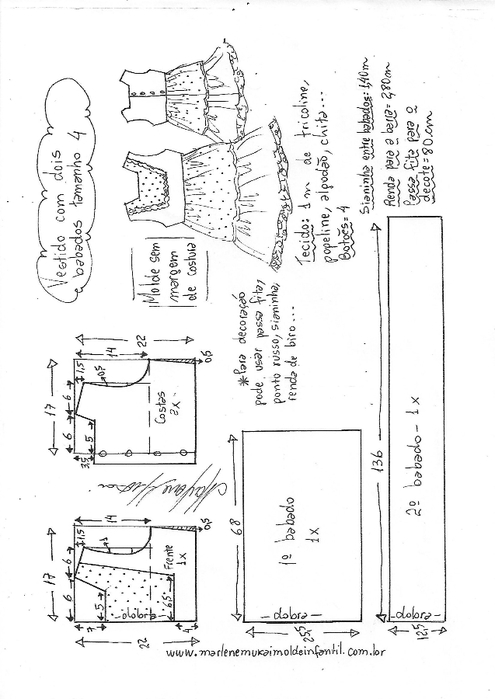 Vestido com dois
babados tamanho 4
Molde sem
margem
de costura
Tecido: 1 m de tricoline,
popeline, algodão, chita...
Botões= 4
Sianinha entre babados: 1,40m
Renda para a barra= 2,80m
Passa fita para o
decote= 80cm
*Para decoração
pode usar passa fita,
ponto russo, sianinha,
renda de biro...
17
6
6
1,5
14
22
0,5
5
3,5
Costas
2x
0,5
17
6
6
1,5
14
5
7
Frente
1x
dobra
6,5
0,5
22
4
68
1º babado
1x
dobra
25,5
136
2º babado - 1x
dobra
12,5
www.marlenemukaimoldeinfantil.com.br